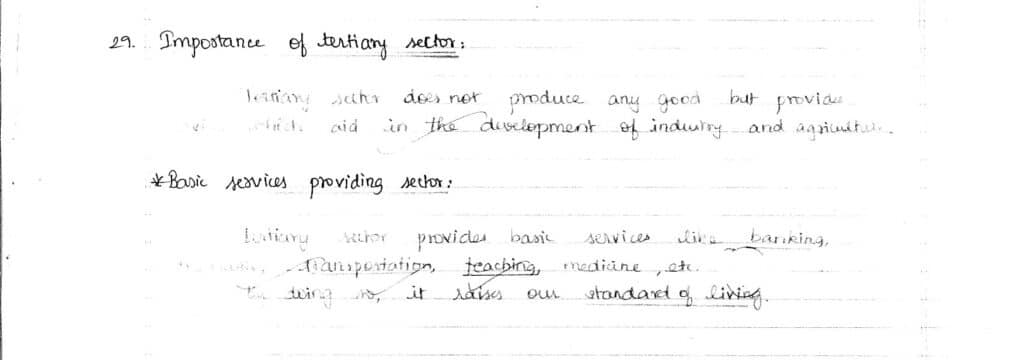 29. Impostance of tertiary sector:
Tertiary sector does not produce any good but provide
which aid in the development of industry and agricultu
* Basic services providing sector:
Tertiary sector provides basic services like banking,
Transportation, teaching, medicine, etc.
doing so, it raises our standard of living.